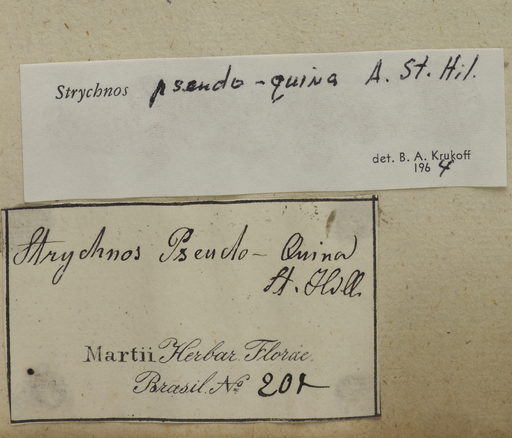 Strychnos pseudo-quina A. St. Hil.
det. B. A. Krukoff
1964
Strychnos Pseudo-Quina
St. Hill.
Martii Herbar. Florae.
Brasil. No 201